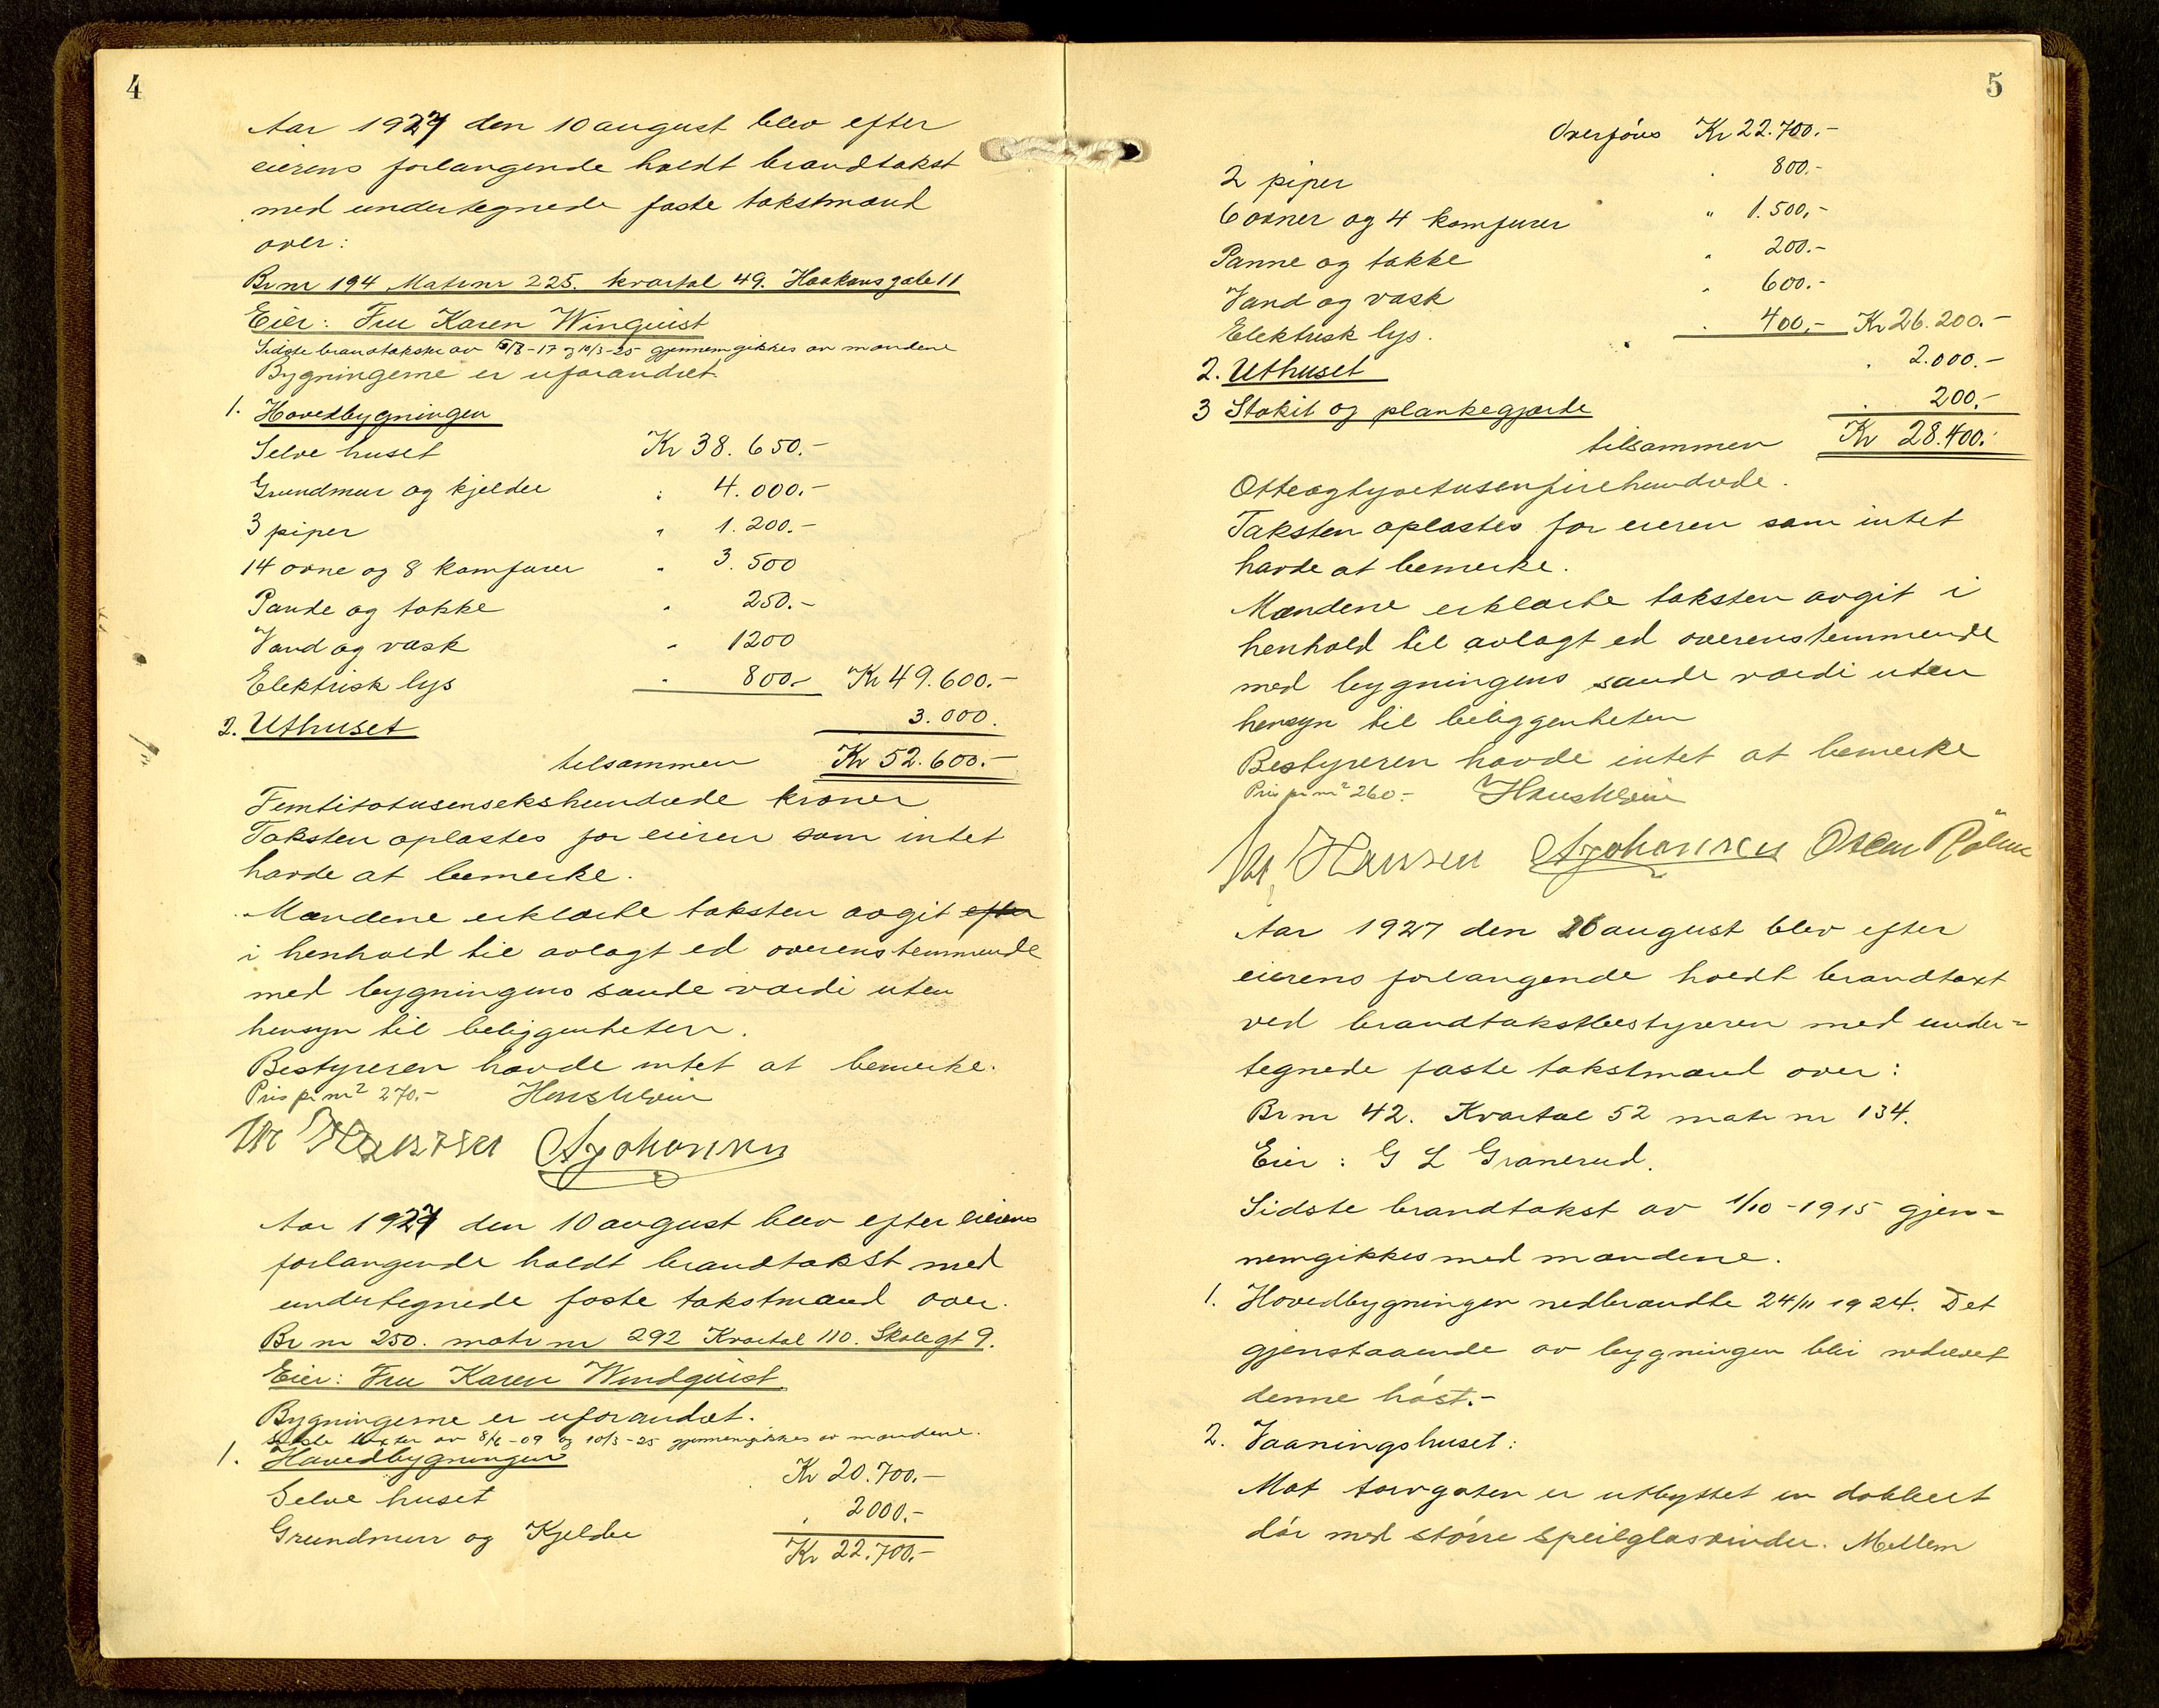 4
Aar 1927 den 10 august blev efter
eierens forlangende holdt brandtakst
med undertegnede faste takstmænd
over:
Br nr 194 Matr nr 225. kvartal 49. Haakonsgate 11
Eier: Fru Karen Winquist
Sidste brandtakster av 6/8-17 og 10/3-25 gjennemgikkes av mændene
Bygningerne er uforandret.
1. Hovedbygningen
Selve huset Kr 38.650.-
Grundmur og kjelder " 4.000.-
3 piper " 1.200.-
14 ovne og 8 komfurer " 3.500
Pande og takke " 250.-
Vand og vask " 1200
Elektrisk lys " 800.- Kr 49.600.-
2. Uthuset 3.000.
tilsammen Kr 52.600.-
Femtitotusensekshundrede kroner
Taksten oplæstes for eieren som intet
havde at bemerke.
Mændene erklærte taksten avgit efter
i henhold til avlagt ed overenstemmende
med bygningens sande værdi uten
hensyn til beliggenheten.
Bestyreren havde intet at bemerke.
Pris pr m² 270.-
Hansen A Johansen
Aar 1927 den 10 august blev efter eierens
forlangende holdt brandtakst med
undertegnede faste takstmænd over.
Br nr 250. matr nr 292 Kvartal 110. Skolegt 9.
Eier: Fru Karen Windquist.
Bygningerne er uforandret.
Sidste taxter av 8/6-09 og 10/3-25 gjennemgikkes av mændene.
1. Hovedbygningen
Selve huset Kr 20.700.-
Grundmur og Kjelder " 2000.-
Kr 22.700.-
5
Overføres Kr 22.700.-
2 piper " 800.-
6 ovner og 4 komfurer " 1.500,-
Panne og takke " 200.-
Vand og vask " 600.-
Elektrisk lys. " 400,- Kr 26.200.-
2. Uthuset " 2.000.-
3 Stakit og plankegjærde " 200.-
tilsammen Kr 28.400.-
Otteogtyvetusenfirehundrede.
Taksten oplæstes for eieren som intet
havde at bemerke.
Mændene erklærte taksten avgit i
henhold til avlagt ed overenstemmende
med bygningens sande værdi uten
hensyn til beliggenheten
Bestyreren havde intet at bemerke
Pris pr m² 260.-
Hansen A Johansen Oscar
Aar 1927 den 26 august blev efter
eierens forlangende holdt brandtaxt
ved brandtakstbestyreren med under=
tegnede faste takstmænd over:
Br nr 42. Kvartal 52 matr nr 134.
Eier: G L Granerud.
Sidste brandtakst av 1/10-1915 gjen=
nemgikkes med mændene.
1. Hovedbygningen nedbrandte 24/11 1924. Det
gjenstaaende av bygningen blir nedrevet
denne høst.-
2. Vaaningshuset:
Mot torvgaten er utbyttet en dobbelt
dør med større speilglasvindu. Mellem